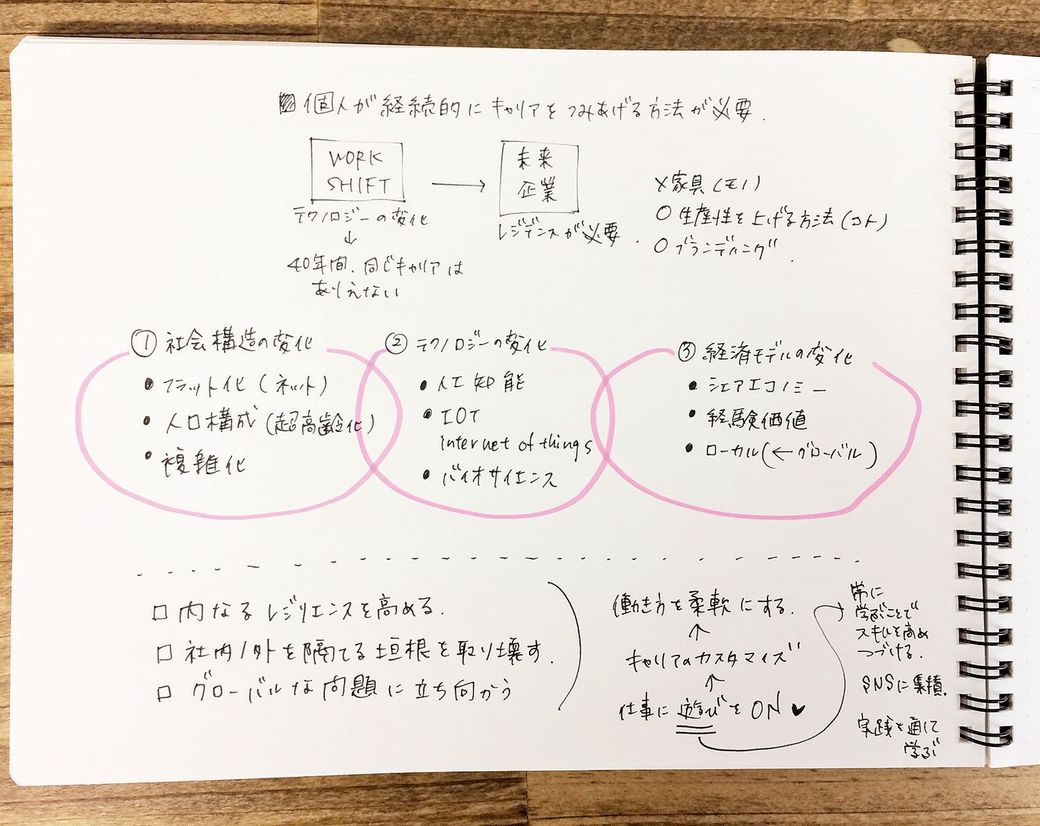 個人が経続的にキャリアをつみあげる方法が必要.
WORK
SHIFT
→
未来
企業
テクノロジーの変化
↓
40年間、同じキャリアは
ありえない
レジデンスが必要.
×家具(モノ)
○生産性を上げる方法(コト)
○ブランディング.
① 社会構造の変化
• フラット化(ネット)
• 人口構成(超高齢化)
• 複雑化
② テクノロジーの変化
• 人工知能
• IOT
Internet of things
• バイオサイエンス
③ 経済モデルの変化
• シェアエコノミー
• 経験価値
• ローカル(←グローバル)
□ 内なるレジリエンスを高める.
□ 社内/外を隔てる垣根を取り壊す.
□ グローバルな問題に立ち向かう
働き方を柔軟にする.
↑
キャリアのカスタマイズ
↑
仕事に遊びをON♥
常に
学ぶことで
スキルを高め
つづける.
SNSに集積.
実践を通して
学ぶ